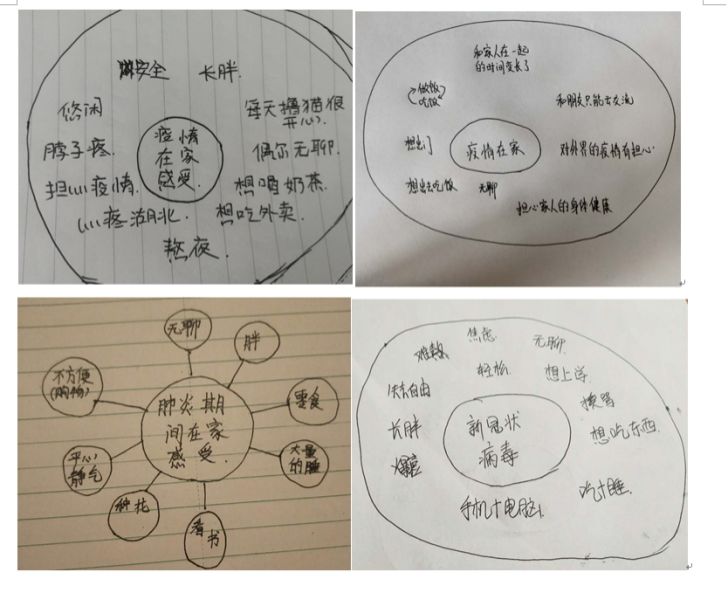 安全
长胖.
悠闲
每天撸猫很
开心.
脖子疼.
疫情
在家
感受.
偶尔无聊.
担心疫情.
想喝奶茶.
心疼湖北.
想吃外卖.
熬夜.
和家人在一起
的时间变长了
做饭
吃饭
和朋友只能云交流
想出门
疫情在家
对外界的疫情有担心.
想出去吃饭
无聊
担心家人的身体健康
无聊
胖
不方便
(购物)
肺炎期
间在家
感受.
零食
平心
静气
大量
的睡
种花
看书
焦虑
无聊.
难熬
轻松
想上学
失去自由
换骂
长胖
新冠状
病毒
想吃东西.
吃+睡.
手机+电脑.